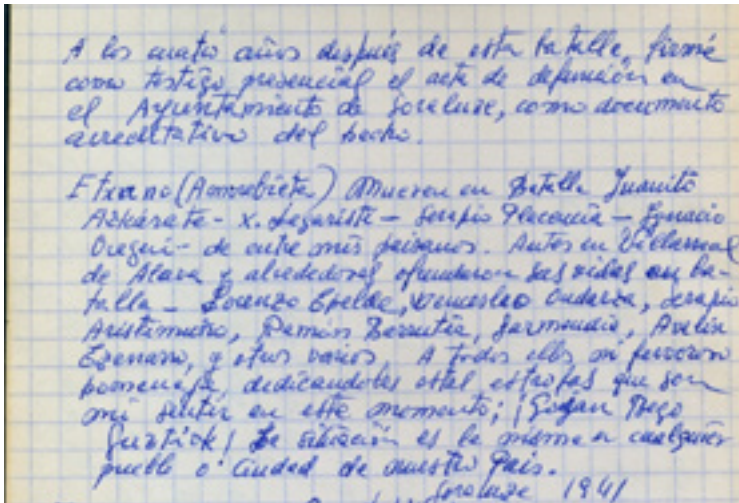 A los cuatro años después de esta batalla, firmé
como testigo presencial el acta de defunción en
el Ayuntamiento de Soraluze, como documento
acreditativo del hecho.
Etxano (Amorebieta) Mueren en Batalla Juanito
Azkárate - X. Legariste - Serapio Placencia - Ignacio
Oregui - de entre mis paisanos. Antes en Villarreal
de Alava y alrededores ofrendaron sus vidas en ba-
talla - Lorenzo Wenceslao Serapio
Aristimuño, Ramón Berrutia, Garmendia,
y otros varios, A todos ellos mi fervoroso
homenaje, dedicandoles estas estrofas que son
mi sentir en este momento; ¡Goyan Bego
La situación es la misma en cualquier
pueblo o Ciudad de nuestro Pais.
Soraluze 1941